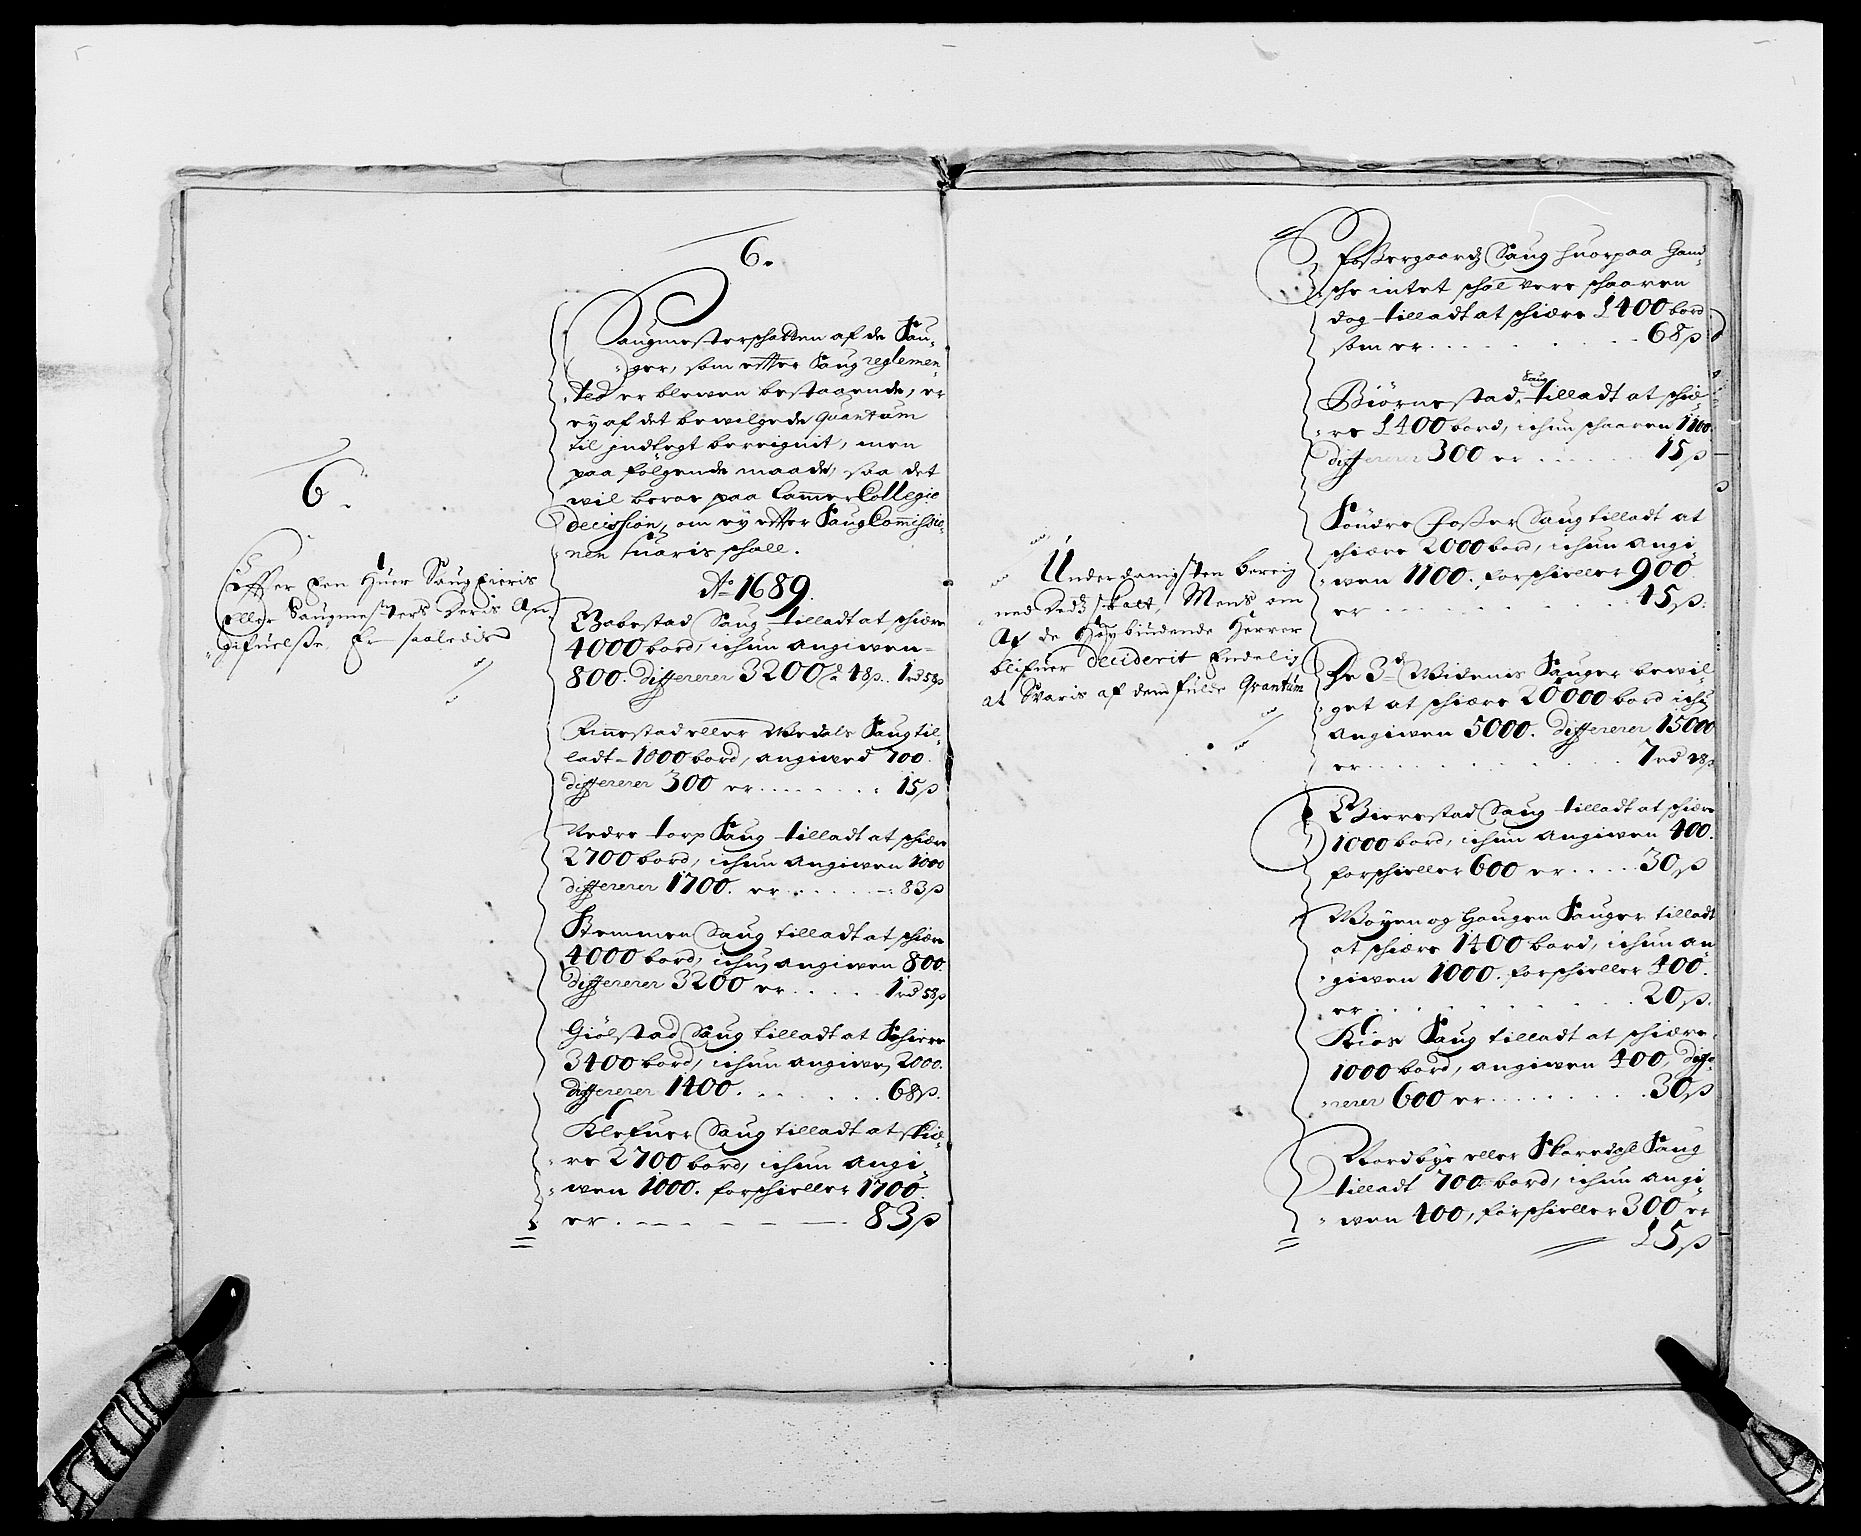 6.
Effter een Huer Saug Eieris
eller Saugmesters Deris An,
gifuelse, Er saaledis
6.
Saugmesterschatten af de Sau,
ger, som effter Saug reglemen,
ted er blewen bestaaende, er
ey af det bewilgede quantum
til jndtegt bereignit, men
paa følgende maade, saa det
wil beroe paa Cammer Collegie
decission, om ey effter Saug Commissio,
nen suaris schall.
Ao 1689.
Babestad Saug tilladt at schiære
4000 bord, ichun angiwen
800. differerer 3200 a 48 s. 1 rd 58 s
Finnestad eller Wedals Saug til,
ladt 1000 bord, angiwed 700.
differerer 300 er . . . . . . 15 s
Nedre torp Saug tilladt at schiære
2700 bord, ichun angiwen 1000
differerer 1700. er . . . . . 83 s
Stemmen Saug tilladt at schiære
4000 bord, ichun angiwen 800.
differerer 3200 er . . . . 1 rd 58 s
Giølstad Saug tilladt at schiere
3400 bord, ichun angiwen 2000.
differerer 1400. . . . . . . 68 s.
Klefuer Saug tilladt at skiæ,
re 2700 bord, ichun angi,
wen 1000. forschieller 1700.
er . . . . . . 83 s
Underdanigsten bereig
ned Dedz skatt, Mens om
Af de Høybiudende Herrer
blifuer deciderit Endelig
at Svaris af dem fulde Qvantum
Fossergaardz Saug huorpaa Gand,
sche intet schal vere schaaren
dog tilladt at schiære 1400 bord
som er . . . . . . . . 68 s
Biørnestad Saug tilladt at schiæ,
re 1400 bord, ichun schaaren 1100.
differerer 300 er . . . . . . 15 s
Søndre Fosser Saug tilladt at
schiære 2000 bord, ichun angi,
wen 1100. forschieller 900
er . . . . . . . . 45 s.
De 3de Widenis Sauger bewil,
get at schiære 20000 bord ichun
angiwen 5000. differerer 15000
er . . . . . . . . 7 rd 28 s
Bierestad Saug tilladt at schiære
1000 bord, ichun angiwen 400.
forschieller 600 er . . . . . 30 s
Woyen og Haugen Sauger tilladt
at schiære 1400 bord, ichun an
giwen 1000. forschieller 400.
er . . . . . . . . 20 s.
Kios Saug tilladt at schiære
1000 bord, angiwen 400, diffe,
rerer 600 er . . . . . . . 30 s
Nordbye eller Skoredahl Saug
tilladt 700 bord, ichun angi
wen 400, forschieller 300 er
15 s